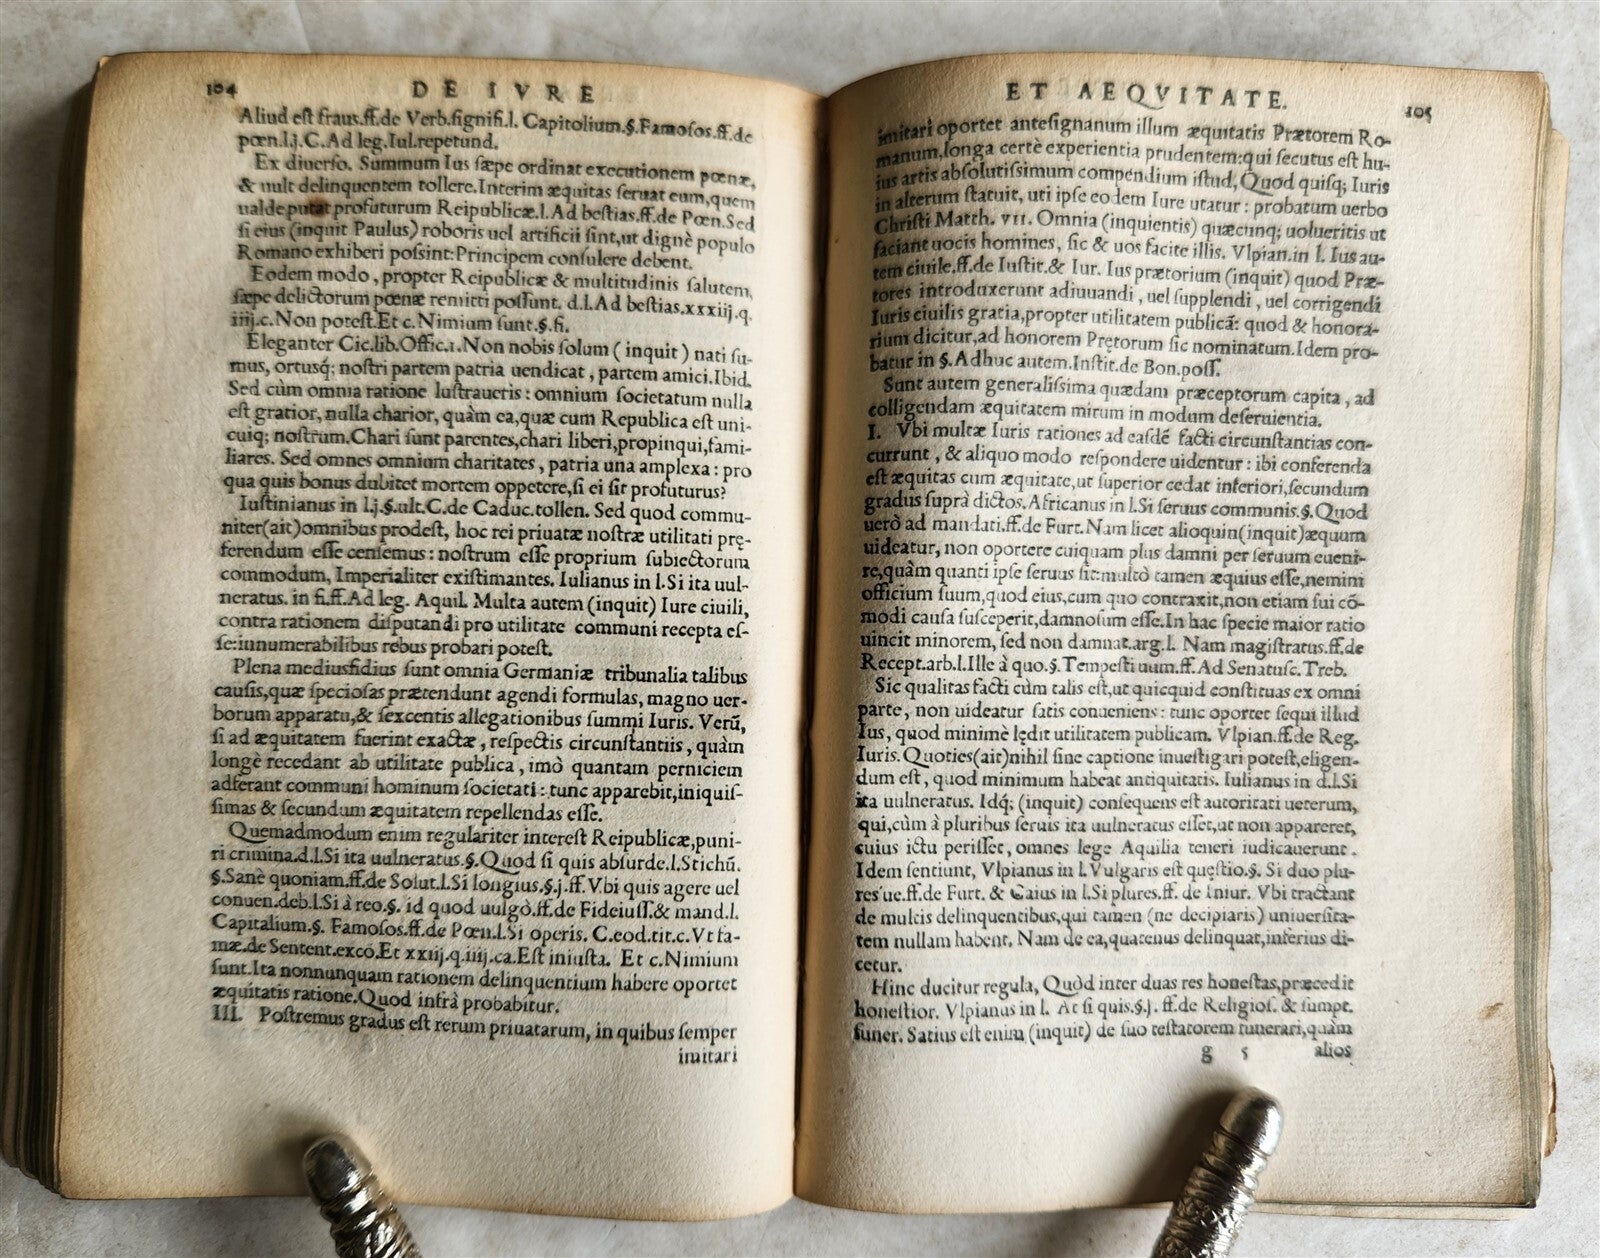 104
DE IVRE
Aliud est fraus.ff.de Verb.signifi.l. Capitolium.§.Famosos.ff.de
pœn.l.j.C.Ad leg.Iul.repetund.
Ex diuerso. Summum Ius sæpe ordinat executionem pœnæ,
& uult delinquentem tollere.Interim æquitas seruat eum,quem
ualde putat profuturum Reipublicæ.l.Ad bestias.ff.de Pœn.Sed
si eius (inquit Paulus) roboris uel artificii sint,ut dignè populo
Romano exhiberi possint:Principem consulere debent.
Eodem modo, propter Reipublicæ & multitudinis salutem,
sæpe delictorum pœnæ remitti possunt. d.l.Ad bestias.xxxiij.q.
iiij.c.Non potest.Et c.Nimium sunt.§.fi.
Eleganter Cic.lib.Offic.1.Non nobis solum (inquit) nati su-
mus, ortusq; nostri partem patria uendicat, partem amici.Ibid.
Sed cùm omnia ratione lustraueris: omnium societatum nulla
est gratior, nulla charior, quàm ea,quæ cum Republica est uni-
cuiq; nostrum.Chari sunt parentes,chari liberi,propinqui,fami-
liares. Sed omnes omnium charitates, patria una amplexa: pro
qua quis bonus dubitet mortem oppetere,si ei sit profuturus?
Iustinianus in l.j.§.ult.C.de Caduc.tollen. Sed quod commu-
niter(ait)omnibus prodest, hoc rei priuatæ nostræ utilitati prę-
ferendum esse censemus: nostrum esse proprium subiectorum
commodum, Imperialiter existimantes. Iulianus in l.Si ita uul-
neratus. in fi.ff.Ad leg. Aquil. Multa autem (inquit) Iure ciuili,
contra rationem disputandi pro utilitate communi recepta es-
se:innumerabilibus rebus probari potest.
Plena mediusfidius sunt omnia Germaniæ tribunalia talibus
causis,quæ speciosas prætendunt agendi formulas, magno uer-
borum apparatu,& sexcentis allegationibus summi Iuris. Verũ,
si ad æquitatem fuerint exactæ, respectis circunstantiis, quàm
longè recedant ab utilitate publica, imò quantam perniciem
adferant communi hominum societati: tunc apparebit,iniquis-
simas & secundum æquitatem repellendas esse.
Quemadmodum enim regulariter interest Reipublicæ,puni-
ri crimina.d.l.Si ita uulneratus.§.Quod si quis absurde.l.Stichũ.
§.Sanè quoniam.ff.de Solut.l.Si longius.§.j.ff.Vbi quis agere uel
conuen.deb.l.Si à reo.§. id quod uulgò.ff.de Fideiuss.& mand.l.
Capitalium.§. Famosos.ff.de Pœn.l.Si operis. C.eod.tit.c.Vt fa-
mæ.de Sentent.excõ.Et xxiij.q.iiij.ca.Est iniusta. Et c.Nimium
sunt.Ita nonnunquam rationem delinquentium habere oportet
æquitatis ratione.Quod infrà probabitur.
III. Postremus gradus est rerum priuatarum, in quibus semper
imitari
ET AEQVITATE.
105
imitari oportet antesignanum illum æquitatis Prætorem Ro-
manum,longa certè experientia prudentem:qui secutus est hu-
ius artis absolutissimum compendium istud, Quod quisq; Iuris
in alterum statuit, uti ipse eodem Iure utatur: probatum uerbo
Christi Matth. vii. Omnia (inquientis) quæcunq; uolueritis ut
faciant uocis homines, sic & uos facite illis. Vlpian.in l. Ius au-
tem ciuile.ff.de Iustit.& Iur. Ius prætorium (inquit) quod Præ-
tores introduxerunt adiuuandi, uel supplendi, uel corrigendi
Iuris ciuilis gratia,propter utilitatem publicã: quod & honora-
rium dicitur,ad honorem Prętorum sic nominatum.Idem pro-
batur in §.Adhuc autem.Instit.de Bon.poss.
Sunt autem generalissima quædam præceptorum capita, ad
colligendam æquitatem mirum in modum deseruientia.
I. Vbi multæ Iuris rationes ad easdẽ facti circunstantias con-
currunt, & aliquo modo respondere uidentur: ibi conferenda
est æquitas cum æquitate,ut superior cedat inferiori,secundum
gradus suprà dictos. Africanus in l.Si seruus communis.§. Quod
uerò ad mandati.ff.de Furt. Nam licet alioquin(inquit)æquum
uideatur, non oportere cuiquam plus damni per seruum eueni-
re,quàm quanti ipse seruus sit:multò tamen æquius esse,nemini
officium suum,quod eius,cum quo contraxit,non etiam sui cõ-
modi causa susceperit,damnosum esse.In hac specie maior ratio
uincit minorem, sed non damnat.arg.l. Nam magistratus.ff.de
Recept.arb.l.Ille à quo.§.Tempestiuum.ff.Ad Senatusc. Treb.
Sic qualitas facti cùm talis est,ut quicquid constituas ex omni
parte, non uideatur satis conueniens: tunc oportet sequi illud
Ius, quod minimè lędit utilitatem publicam. Vlpian.ff.de Reg.
Iuris. Quoties(ait)nihil sine captione inuestigari potest,eligen-
dum est, quod minimum habeat antiquitatis. Iulianus in d.l.Si
ita uulneratus. Idq; (inquit) consequens est autoritati ueterum,
qui,cùm à pluribus seruis ita uulneratus esset,ut non appareret,
cuius ictu perisset, omnes lege Aquilia teneri iudicauerunt.
Idem sentiunt, Vlpianus in l.Vulgaris est quęstio.§. Si duo plu-
res'ue.ff.de Furt. & Caius in l.Si plures.ff.de Iniur. Vbi tractant
de multis delinquentibus,qui tamen (ne decipiaris) uniuersita-
tem nullam habent. Nam de ea,quatenus delinquat,inferius di-
cetur.
Hinc ducitur regula, Quòd inter duas res honestas,præcedit
honestior. Vlpianus in l. At si quis.§.j. ff.de Religios. & sumpt.
funer. Satius est enim (inquit) de suo testatorem funerari,quàm
g 5 alios